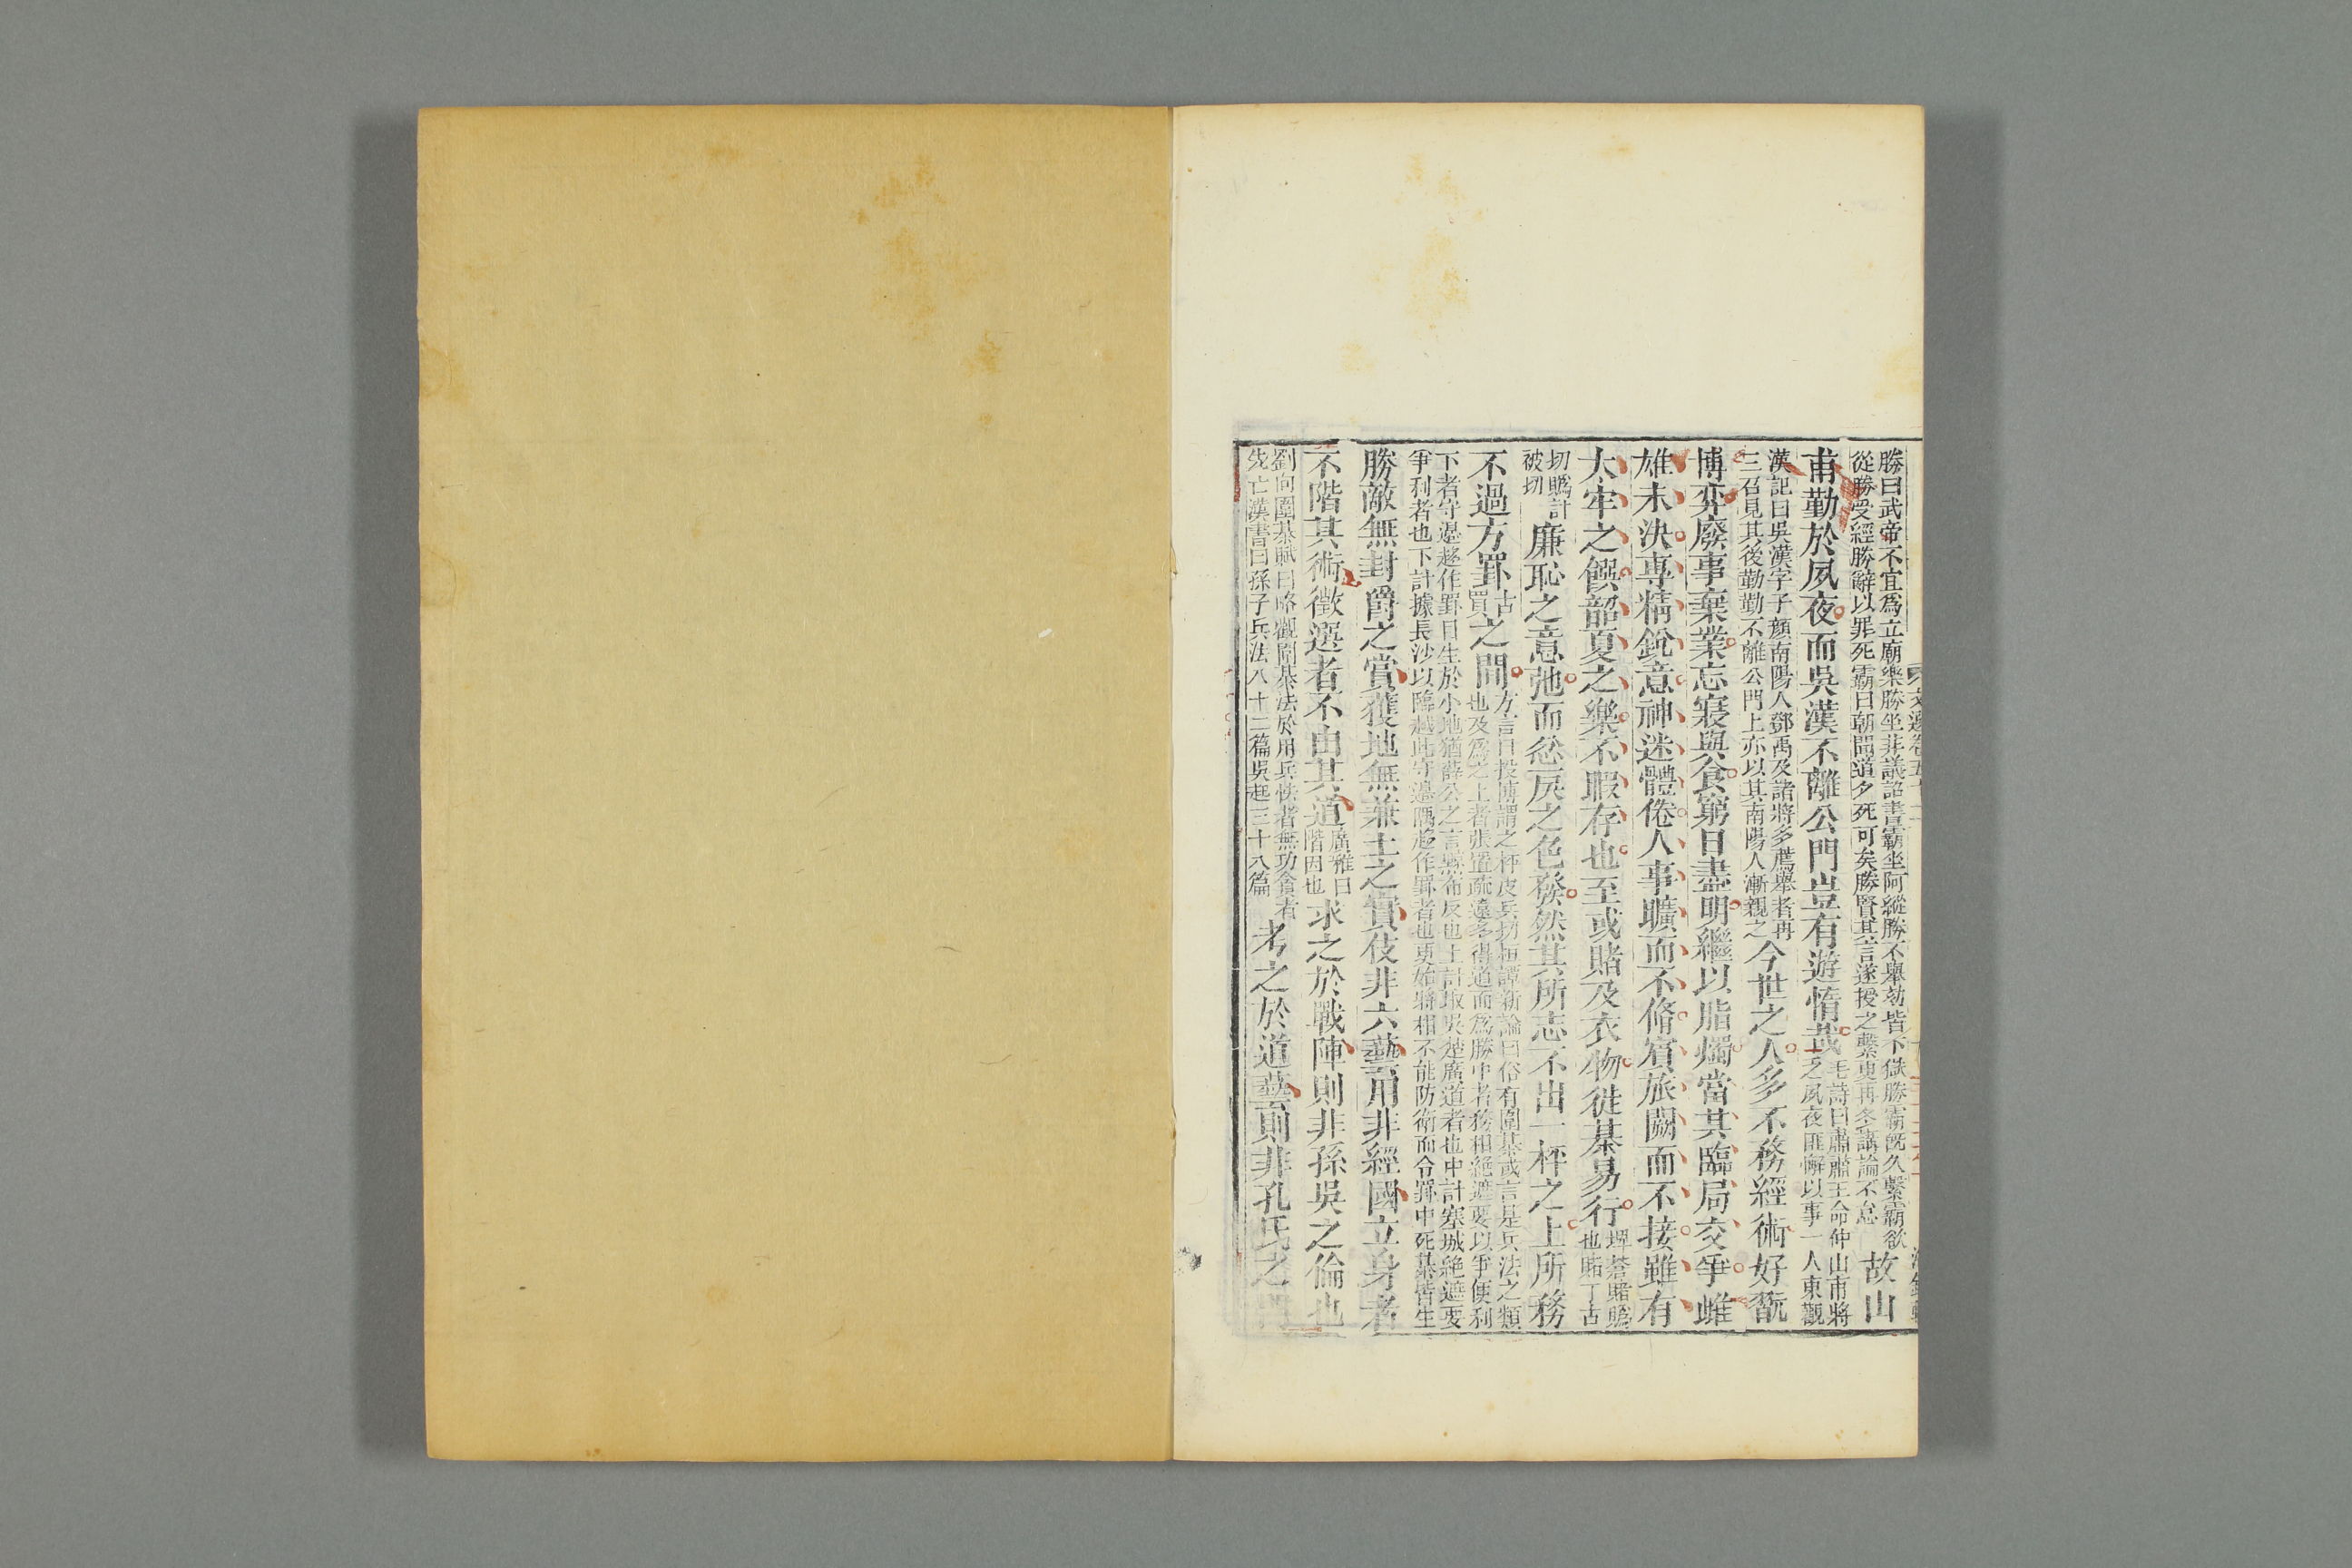 勝曰武帝不宜爲立廟樂勝坐非議詔書霸坐阿縱勝不舉劾皆下獄勝霸旣久繫霸欲
從勝受經勝辭以罪死霸曰朝聞道夕死可矣勝賢其言遂授之繫更再冬講論不怠
故山
甫勤於夙夜而吳漢不離公門豈有遊惰哉
毛詩曰肅肅王命仲山甫將
之夙夜匪懈以事一人東觀
漢記曰吳漢字子顏南陽人鄧禹及諸將多薦舉者再
三召見其後勤勤不離公門上亦以其南陽人漸親之
今世之人多不務經術好翫
博弈廢事棄業忘寢與食窮日盡明繼以脂燭當其臨局交爭雌
雄未決專精銳意神迷體倦人事曠而不脩賓旅闕而不接雖有
太牢之饌韶夏之樂不暇存也至或賭及衣物徙棊易行
埤蒼賭賭
也賭丁古
切賭計
被切
廉恥之意弛而忿戾之色發然其所志不出一枰之上所務
不過方罫
古
買
之間
方言曰投博謂之枰皮兵切桓譚新論曰俗有圍棊或言是兵法之類
也及爲之上者張置疏遠多得道而爲勝中者務相絕遮要以爭便利
下者守邊趍作罫目生於小地猶薛公之言黥布反也上計取吳楚廣道者也中計塞城絕遮要
爭利者也下計據長沙以臨越此守邊隅趍作罫者也更始將相不能防衛而令罫中死棊皆生
勝敵無封爵之賞獲地無兼土之實伎非六藝用非經國立身者
不階其術徵選者不由其道
廣雅曰
階因也
求之於戰陣則非孫吳之倫也
劉向圍棊賦曰略觀圍棊法於用兵怯者無功貪者
先亡漢書曰孫子兵法八十二篇吳起三十八篇
考之於道藝則非孔氏之